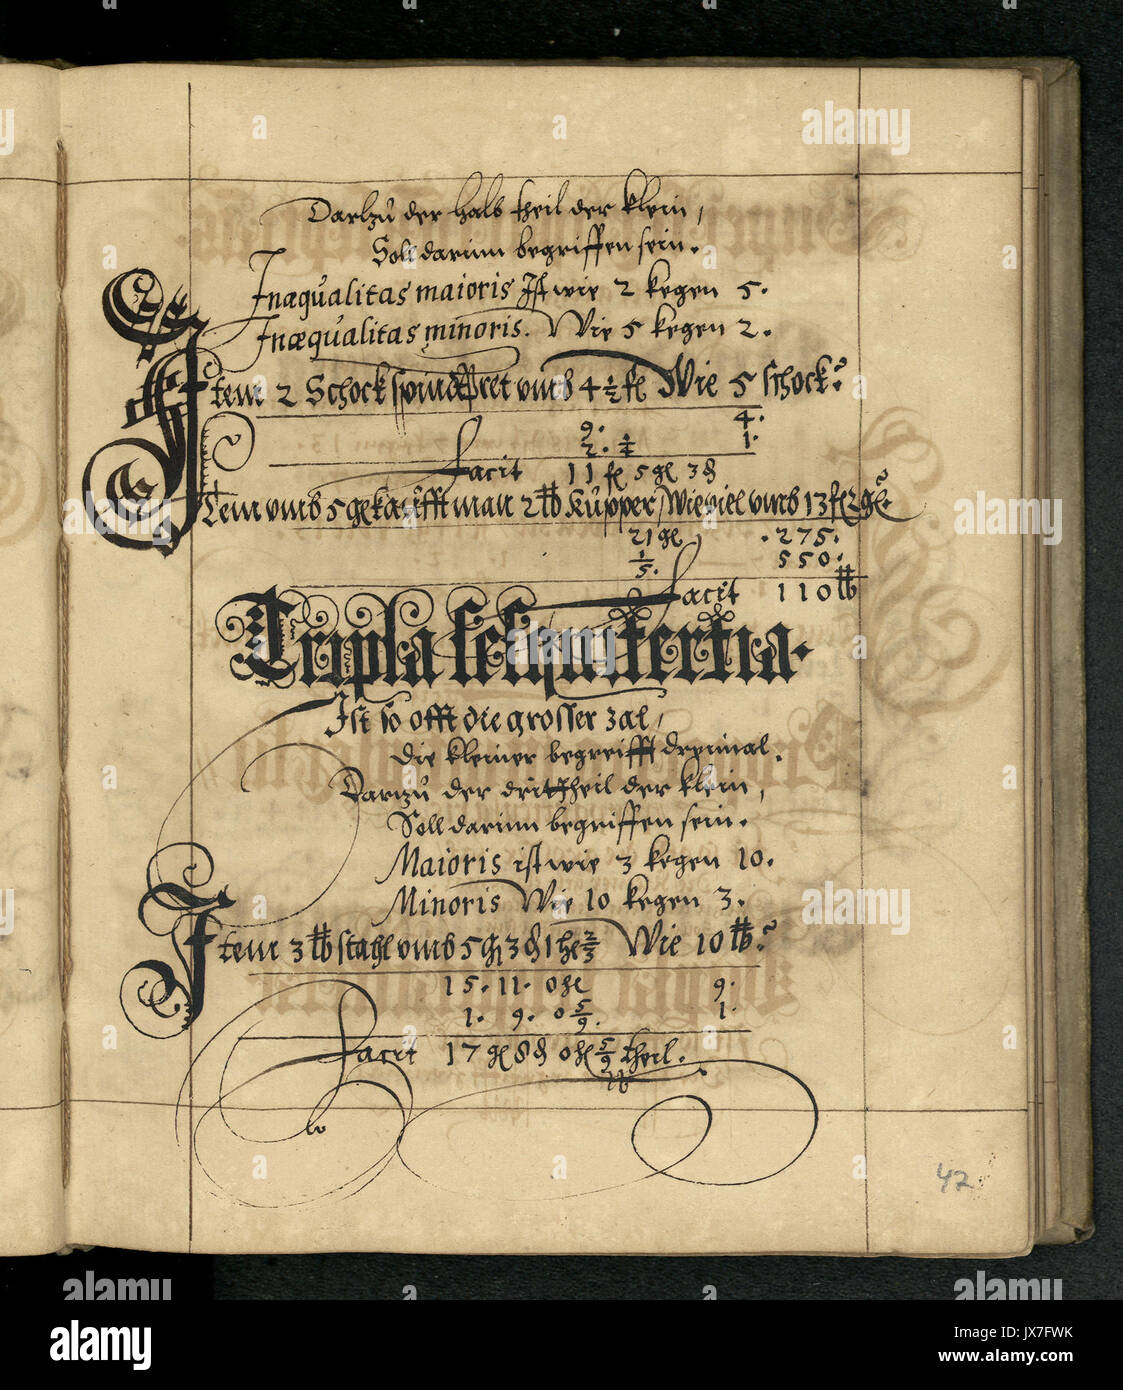 Darhzu der halb theil der klein,
Soll darinn begriffen sein.
Inæqualitas maioris Ist wie 2 kegen 5.
Inæqualitas minoris. Wie 5 kegen 2.
Item 2 Schock umb 4 1/2 fl Wie 5 schock?
9. 4.
2. 1.
Facit 11 fl 5 gl 3 ₰
Item umb 5 gl kaufft man 2 ℔ Kupper, Wieviel umb 13 fl 2 gl?
21 gl . 275.
1/5. 550.
Facit 110 ℔
Tripla sesquitertia.
Ist so offt die grosser zal,
Die kleiner begreifft dreimal.
Darzu der dritttheil der klein,
Soll darinn begriffen sein.
Maioris ist wie 3 kegen 10.
Minoris Wie 10 kegen 3.
Item 3 ℔ stahl umb 5 gl 3 ₰ 1 hl 2/3 Wie 10 ℔?
15. 11. 0 hl 9.
1. 9. 0 5/9. 1.
Facit 17 gl 8 ₰ 0 hl 5/9 theil.
42
alamy
Image ID: JX7FWK
www.alamy.com